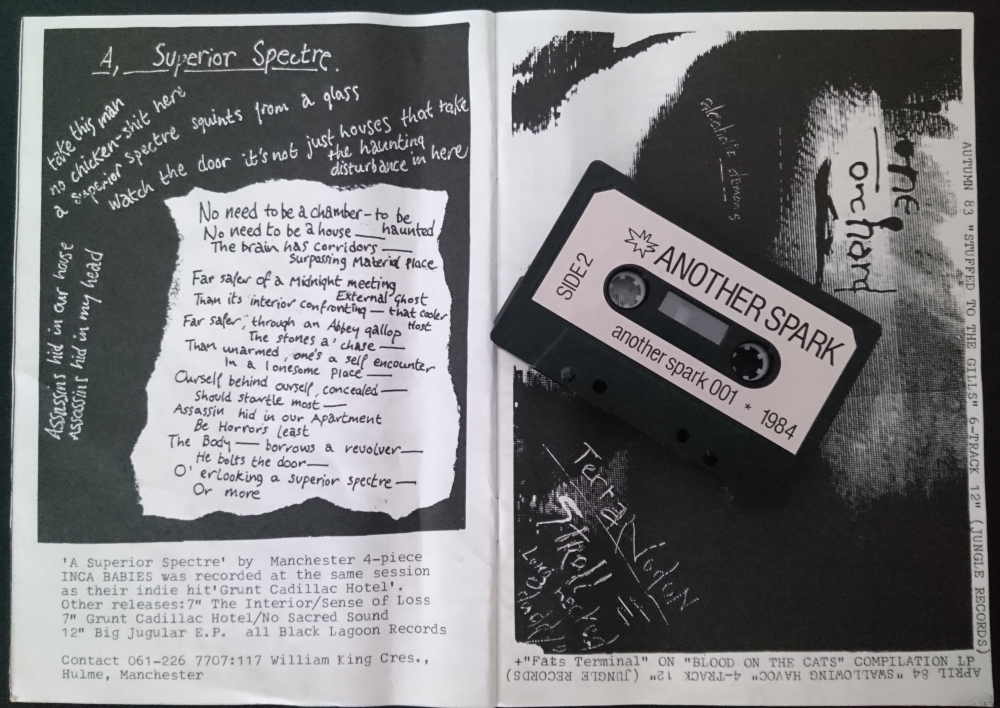 A, Superior Spectre.
take this man
no chicken-shit here
a superior spectre squints from a glass
watch the door it's not just houses that take
the haunting
disturbance in here
Assassins hid in our house
Assassins hid in my head
No need to be a chamber-to be
No need to be a house — haunted
The brain has corridors —
Surpassing Material Place
Far safer of a Midnight meeting
External Ghost
Than its interior confronting — that cooler
Host
Far safer, through an Abbey gallop
The stones a' chase —
Than unarmed, one's a self encounter
In a lonesome place —
Ourself behind ourself, concealed —
should startle most —
Assassin hid in our Apartment
Be Horror's least
The Body — borrows a revolver —
He bolts the door —
O'erlooking a superior spectre —
Or more
'A Superior Spectre' by Manchester 4-piece
INCA BABIES was recorded at the same session
as their indie hit'Grunt Cadillac Hotel'.
Other releases:7" The Interior/Sense of Loss
7" Grunt Cadillac Hotel/No Sacred Sound
12" Big Jugular E.P. all Black Lagoon Records
Contact 061-226 7707:117 William King Cres.,
Hulme, Manchester
alcoholic demons
one
orchard
ANOTHER SPARK
SIDE 2
another spark 001 * 1984
Stroll
AUTUMN 83 "STUFFED TO THE GILLS" 6-TRACK 12" (JUNGLE RECORDS)
+"Fats Terminal" ON "BLOOD ON THE CATS" COMPILATION LP
APRIL 84 "SWALLOWING HAVOC" 4-TRACK 12" (JUNGLE RECORDS)